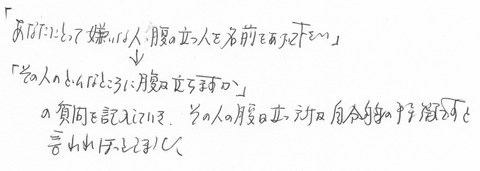 「あなたにとって嫌いな人、腹の立つ人を名前をあげて下さい」
↓
「その人のどんなところに腹が立ちますか」
の質問を記入していき、その人の腹の立つ所は自分の特徴ですと
言われ